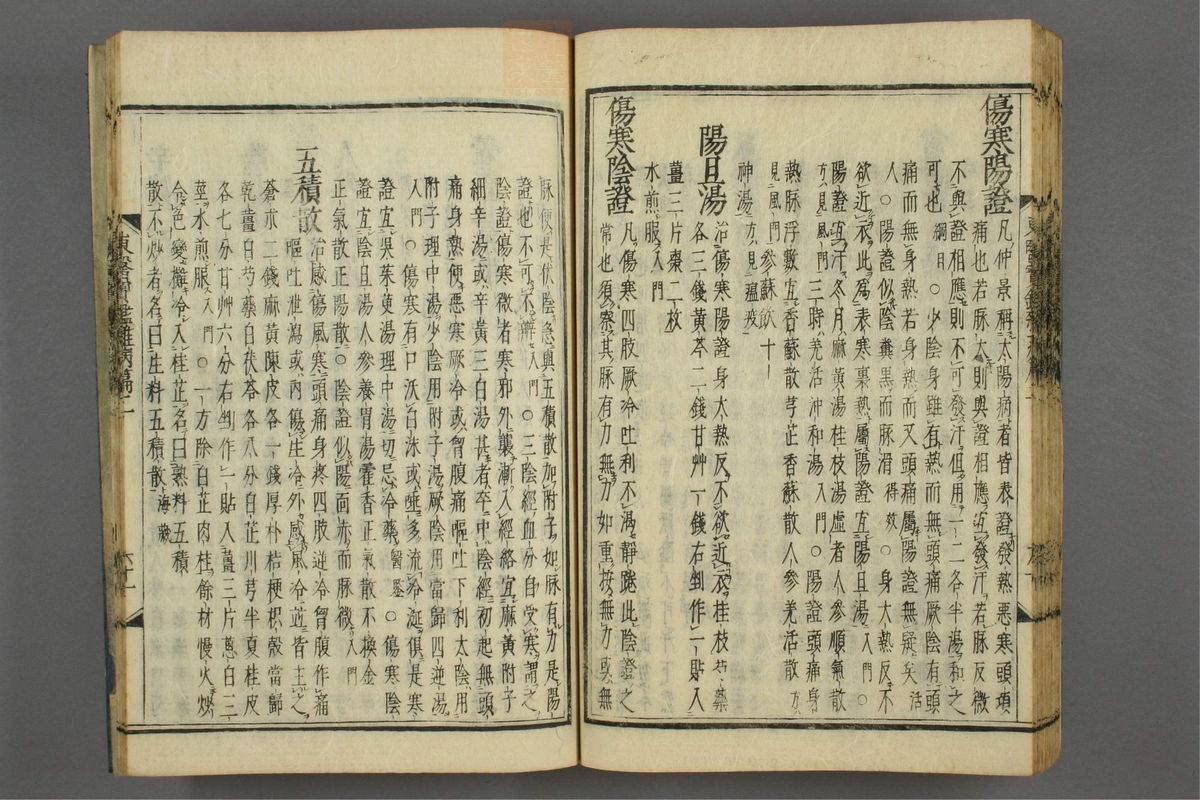 傷寒陽證
凡仲景稱太陽病者皆表證發熱惡寒頭項
痛也若脉大則與證相應宜發汗若脉反微
不與證相應則不可發汗但用一二各半湯和之
可也綱目○少陰身雖有熱而無頭痛厥陰有頭
痛而無身熱若身熱而又頭痛屬陽證無疑矣活
人○陽證似陰糞黑而脉滑得效○身大熱反不
欲近衣此爲表寒裏熱屬陽證宜陽旦湯入門○
陽證宜汗冬月麻黃湯桂枝湯虛者人參順氣散
方見風門三時羌活沖和湯入門○陽證頭痛身
熱脉浮數宜香蘇散芎芷香蘇散人參羌活散方
見風門參蘇飮十
神湯方見瘟疫
陽旦湯
治傷寒陽證身大熱反不欲近衣桂枝芍藥
各三錢黃芩二錢甘艸一錢右剉作一貼入
薑三片棗二枚
水煎服入門
傷寒陰證
凡傷寒四肢厥冷吐利不渴靜踡此陰證之
常也須察其脉有力無力如重按無力或無
脉便是伏陰急與五積散加附子如脉有力是陽
證也不可不辨入門○三陰經血分自受寒謂之
陰證傷寒微者寒邪外襲漸入經絡宜麻黃附子
細辛湯或辛黃三白湯甚者卒中陰經初起無頭
痛身熱便惡寒厥冷或胷腹痛嘔吐下利太陰用
附子理中湯少陰用附子湯厥陰用當歸四逆湯
入門○傷寒有口沃白沫或唾多流冷涎俱是寒
證宜吳茱萸湯理中湯切忌冷藥醫鑑○傷寒陰
證宜陰旦湯人參養胃湯藿香正氣散不換金
正氣散正陽散○陰證似陽面赤而脉微入門
五積散
治感傷風寒頭痛身疼四肢逆冷胷腹作痛
嘔吐泄瀉或內傷生冷外感風冷並皆主之
蒼朮二錢麻黃陳皮各一錢厚朴桔梗枳殼當歸
乾薑白芍藥白茯苓各八分白芷川芎半夏桂皮
各七分甘艸六分右剉作一貼入薑三片葱白三
莖水煎服入門○一方除白芷肉桂餘材慢火炒
令色變攤冷入桂芷名曰熟料五積
散不炒者名曰生料五積散海藏
東醫寶鑑雜病篇二